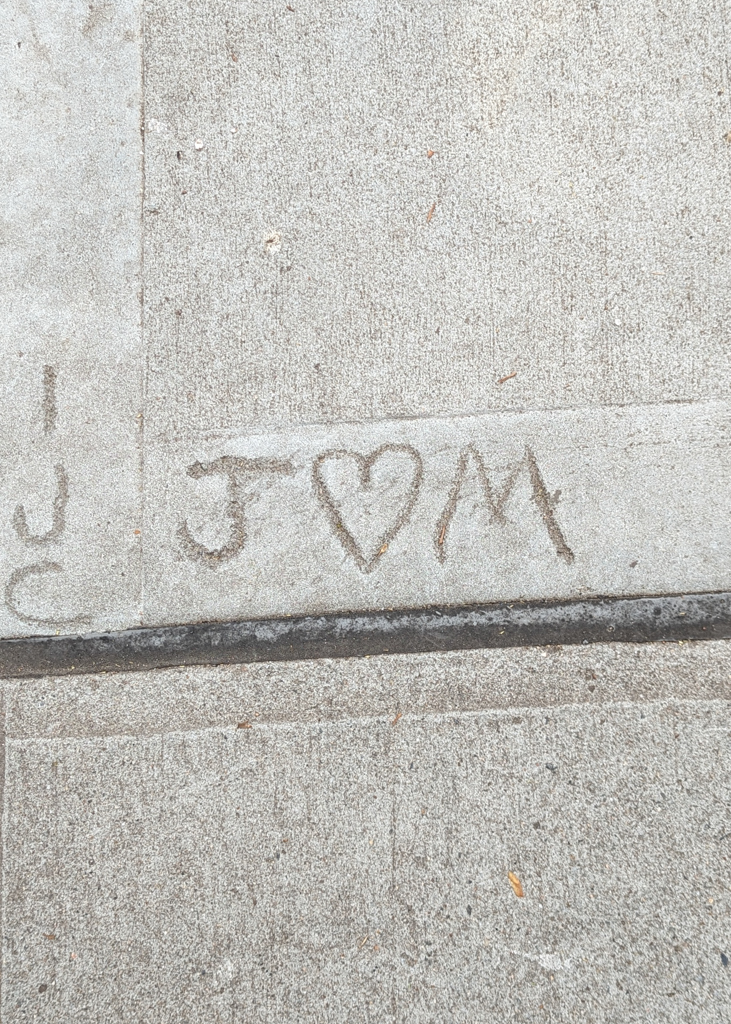 I
J
C
J ♡ M